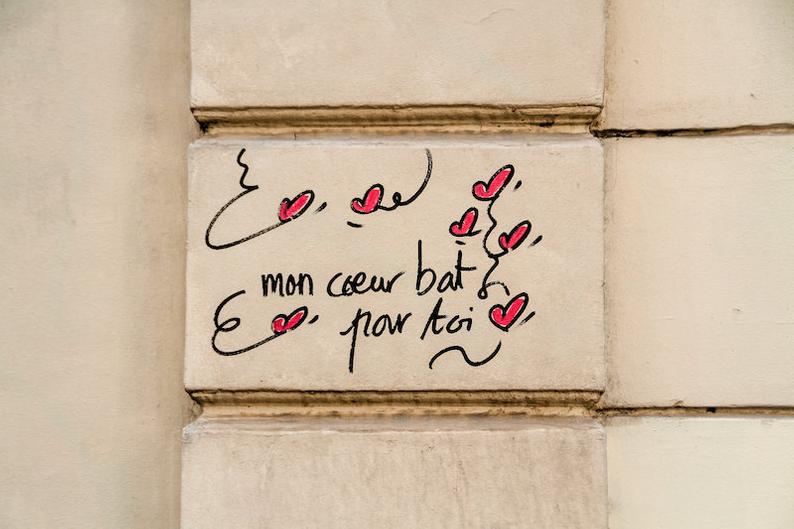 mon cœur bat
pour toi